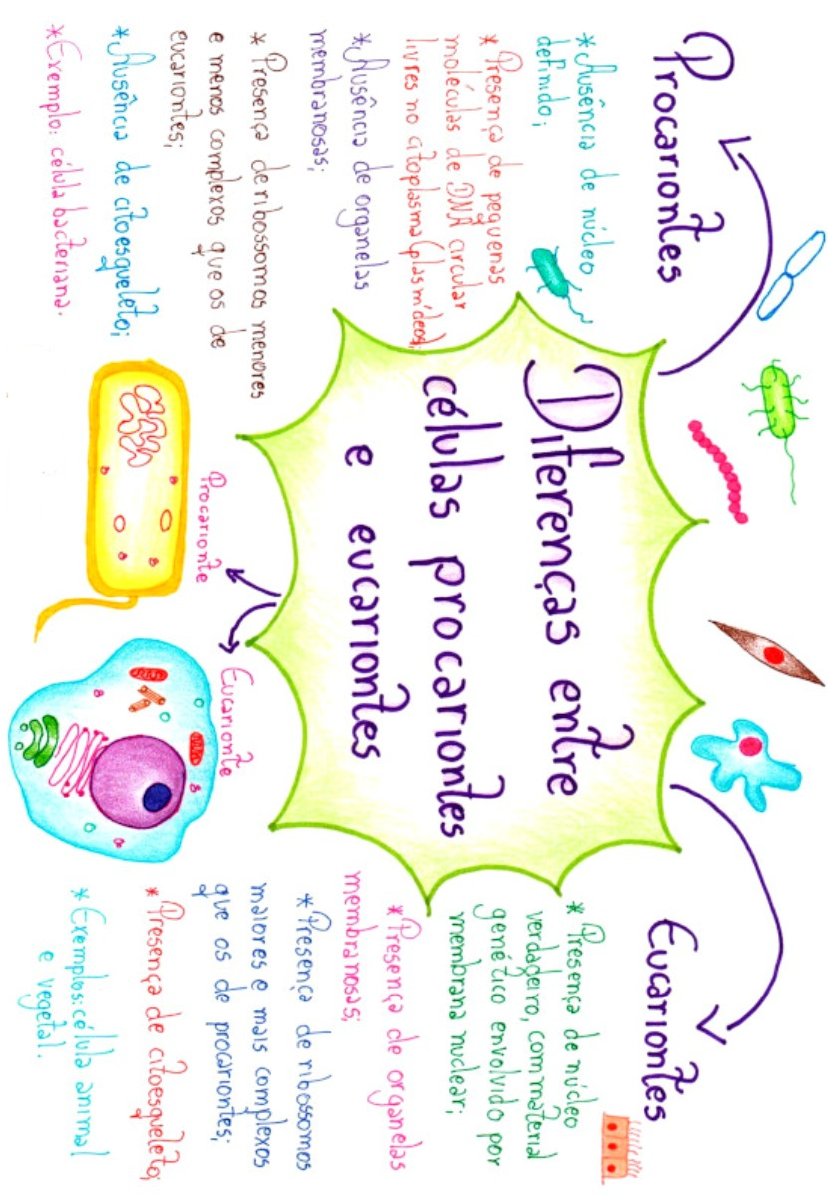 Diferenças entre
células procariontes
e eucariontes
Procariontes
*Ausência de núcleo
definido;
* Presença de pequenas
moléculas de DNA circular
livres no citoplasma (plasmídeos);
*Ausência de organelas
membranosas;
* Presença de ribossomos menores
e menos complexos que os de
eucariontes;
*Ausência de citoesqueleto;
*Exemplo: célula bacteriana.
Procarionte
Eucarionte
Eucariontes
* Presença de núcleo
verdadeiro, com material
genético envolvido por
membrana nuclear;
*Presença de organelas
membranosas;
*Presença de ribossomos
maiores e mais complexos
que os de procariontes;
*Presença de citoesqueleto;
*Exemplos: célula animal
e vegetal.